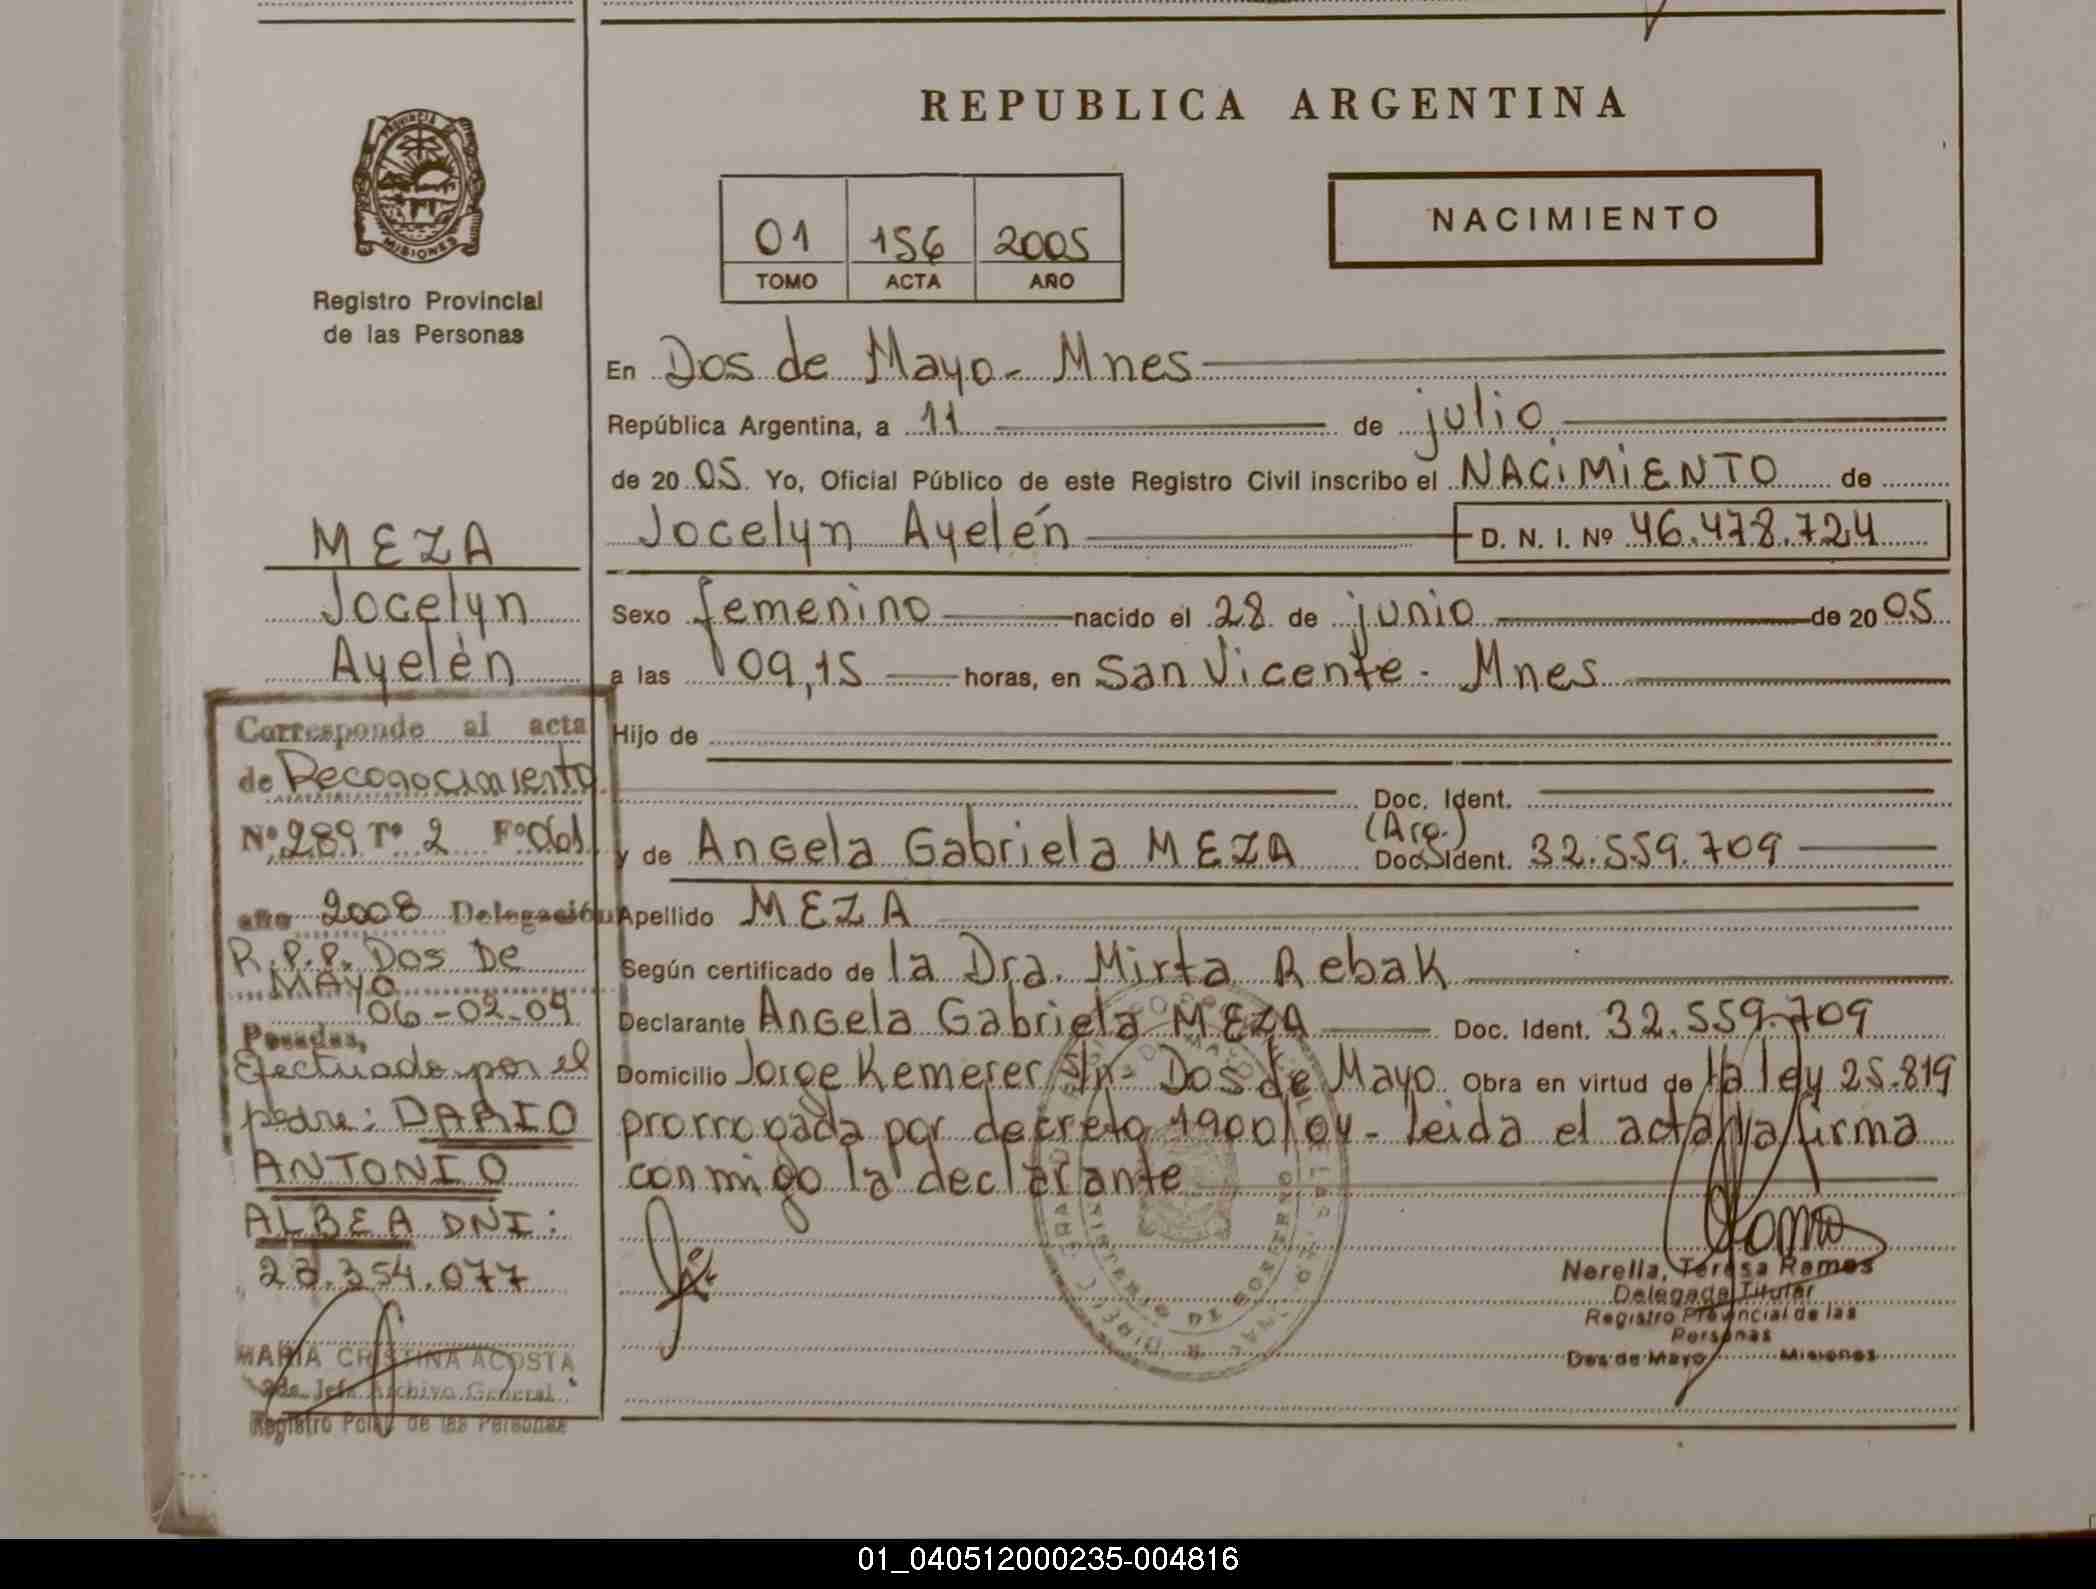 REPUBLICA ARGENTINA
PROVINCIA DE
MISIONES
Registro Provincial
de las Personas
01 156 2005
TOMO ACTA AÑO
NACIMIENTO
En Dos de Mayo - Mnes
República Argentina, a 11 de julio
de 2005 Yo, Oficial Público de este Registro Civil inscribo el NACIMIENTO de
Jocelyn Ayelén D. N. I. Nº 46.478.724
Sexo femenino nacido el 28 de junio de 2005
a las 09,15 horas, en San Vicente - Mnes
Hijo de
Doc. Ident.
(Arg.)
y de Angela Gabriela MEZA Doc. Ident. 32.559.709
Apellido MEZA
Según certificado de la Dra. Mirta Rebak
Declarante Angela Gabriela MEZA Doc. Ident. 32.559.709
Domicilio Jorge Kemerer s/n - Dos de Mayo Obra en virtud de la ley 25.819
prorrogada por decreto 1900/04 - leida el acta la firma
conmigo la declarante
Nerella, Teresa Ramos
Delegada Titular
Registro Provincial de las
Personas
Dos de Mayo Misiones
MEZA
Jocelyn
Ayelén
Corresponde al acta
de Reconocimiento.
Nº 289 Tº 2 Fº 061
año 2008 Delegación
R.P.P. Dos De
MAYO
Posadas, 06-02-09
Efectuado por el
padre: DARIO
ANTONIO
ALBEA DNI:
.354.077
MARIA CRISTINA ACOSTA
2da. Jefa Archivo General
Registro Pcial. de las Personas
01_040512000235-004816